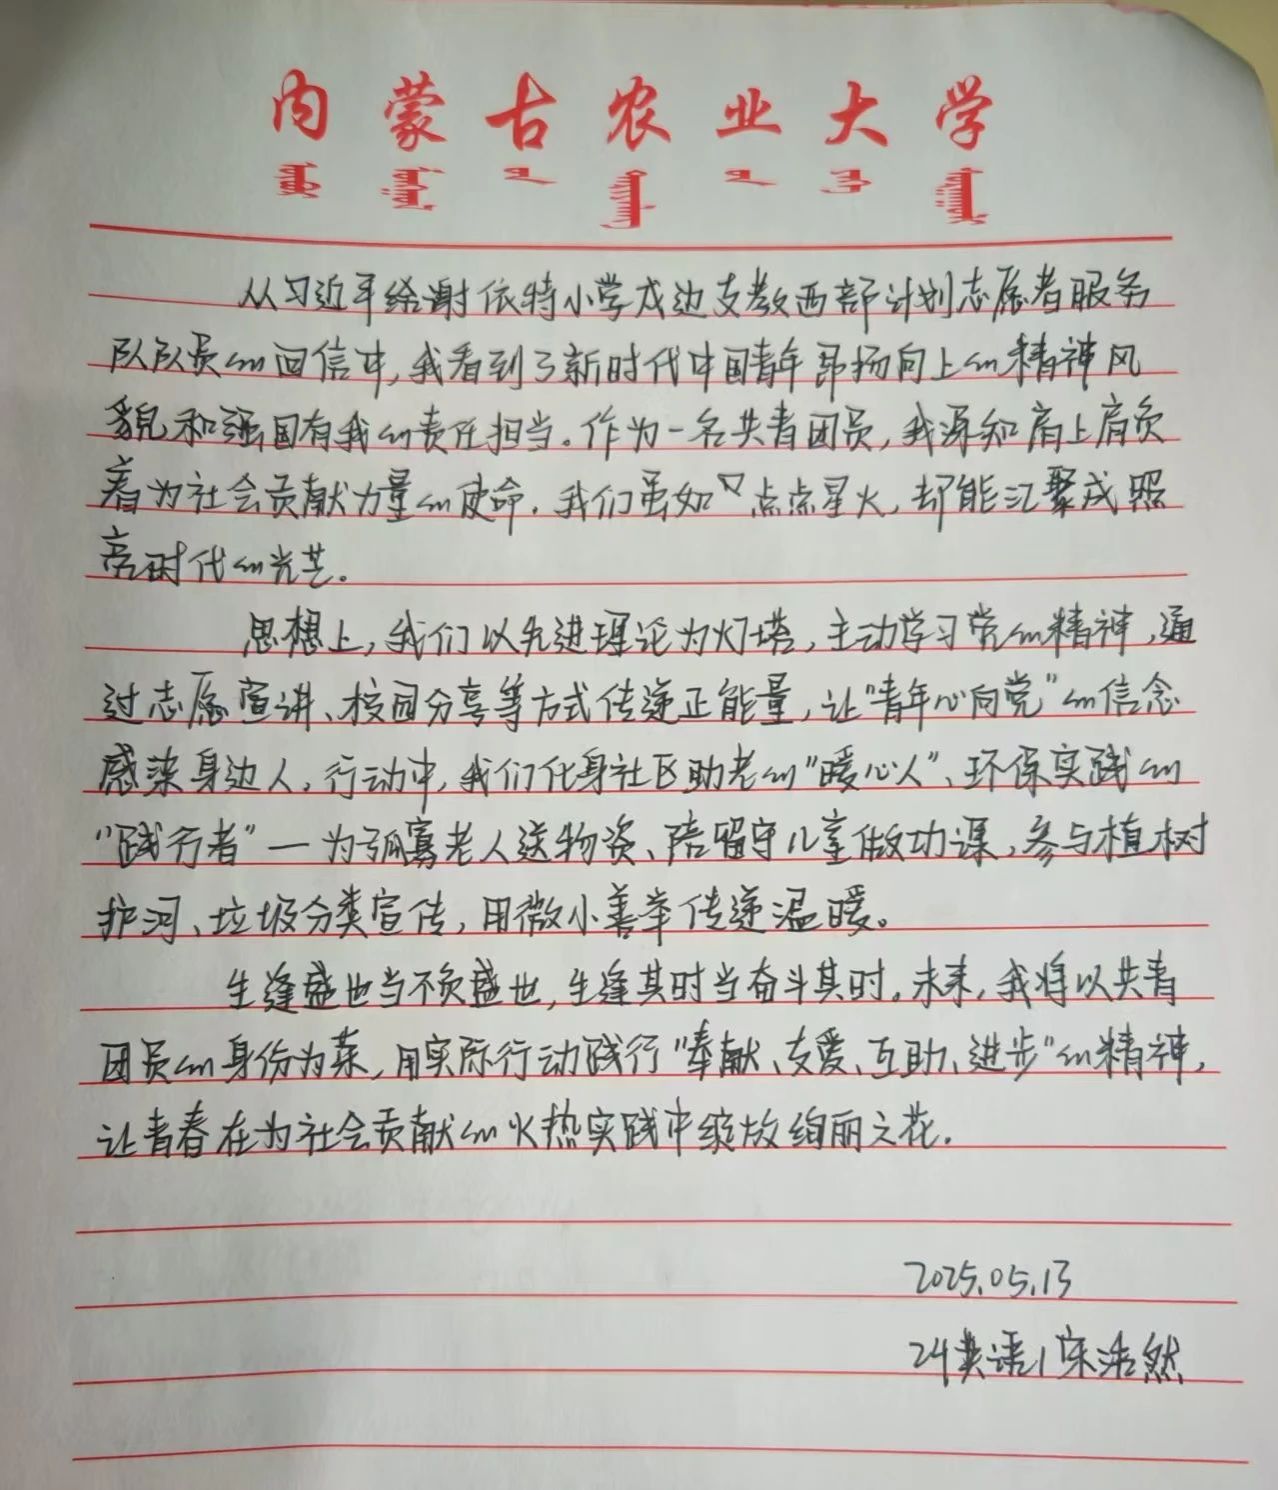 内蒙古农业大学
从习近平给谢依特小学戍边支教西部计划志愿者服务
队队员的回信中,我看到了新时代中国青年昂扬向上的精神风
貌和强国有我的责任担当。作为一名共青团员,我深知肩上肩负
着为社会贡献力量的使命。我们虽如点点星火,却能汇聚成照
亮时代的光芒。
思想上,我们以先进理论为灯塔,主动学习党的精神,通
过志愿宣讲、校园分享等方式传递正能量,让"青年心向党"的信念
感染身边人。行动中,我们化身社区助老的"暖心人"、环保实践的
"践行者"—为孤寡老人送物资、陪留守儿童做功课,参与植树
护河、垃圾分类宣传,用微小善举传递温暖。
生逢盛世当不负盛世,生逢其时当奋斗其时。未来,我将以共青
团员的身份为荣,用实际行动践行"奉献、友爱、互助、进步"的精神,
让青春在为社会贡献的火热实践中绽放绚丽之花。
2025.05.13
24英语1宋浩然